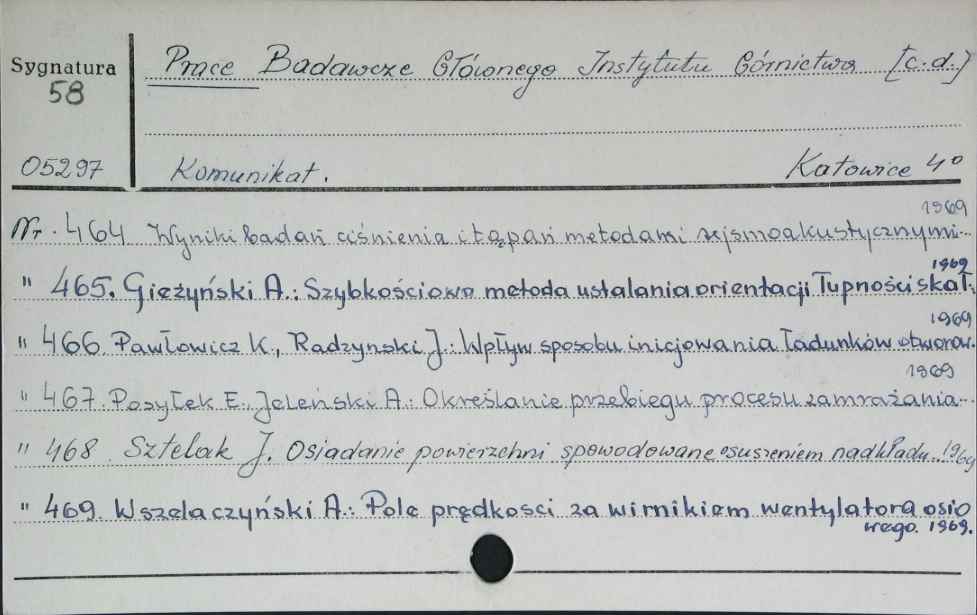 Sygnatura
58
Prace Badawcze Głównego Instytutu Górnictwa [c.d.]
05297
Komunikat.
Katowice 4°
1969
Nr. 464 Wyniki badań ciśnienia i tąpań metodami sejsmoakustycznymi...
1969
" 465. Gieżyński A.: Szybkościowa metoda ustalania orientacji łupności skał.
1969
" 466. Pawłowicz K., Radzynski J.: Wpływ sposobu inicjowania ładunków otworow.
1969
" 467. Posyłek E., Jeleński A.: Określanie przebiegu procesu zamrażania...
" 468. Sztelak J. Osiadanie powierzchni spowodowane osuszeniem nadkładu... 1969
" 469. Wszelaczyński A.: Pole prędkosci za wirnikiem wentylatora osio
wego. 1969.